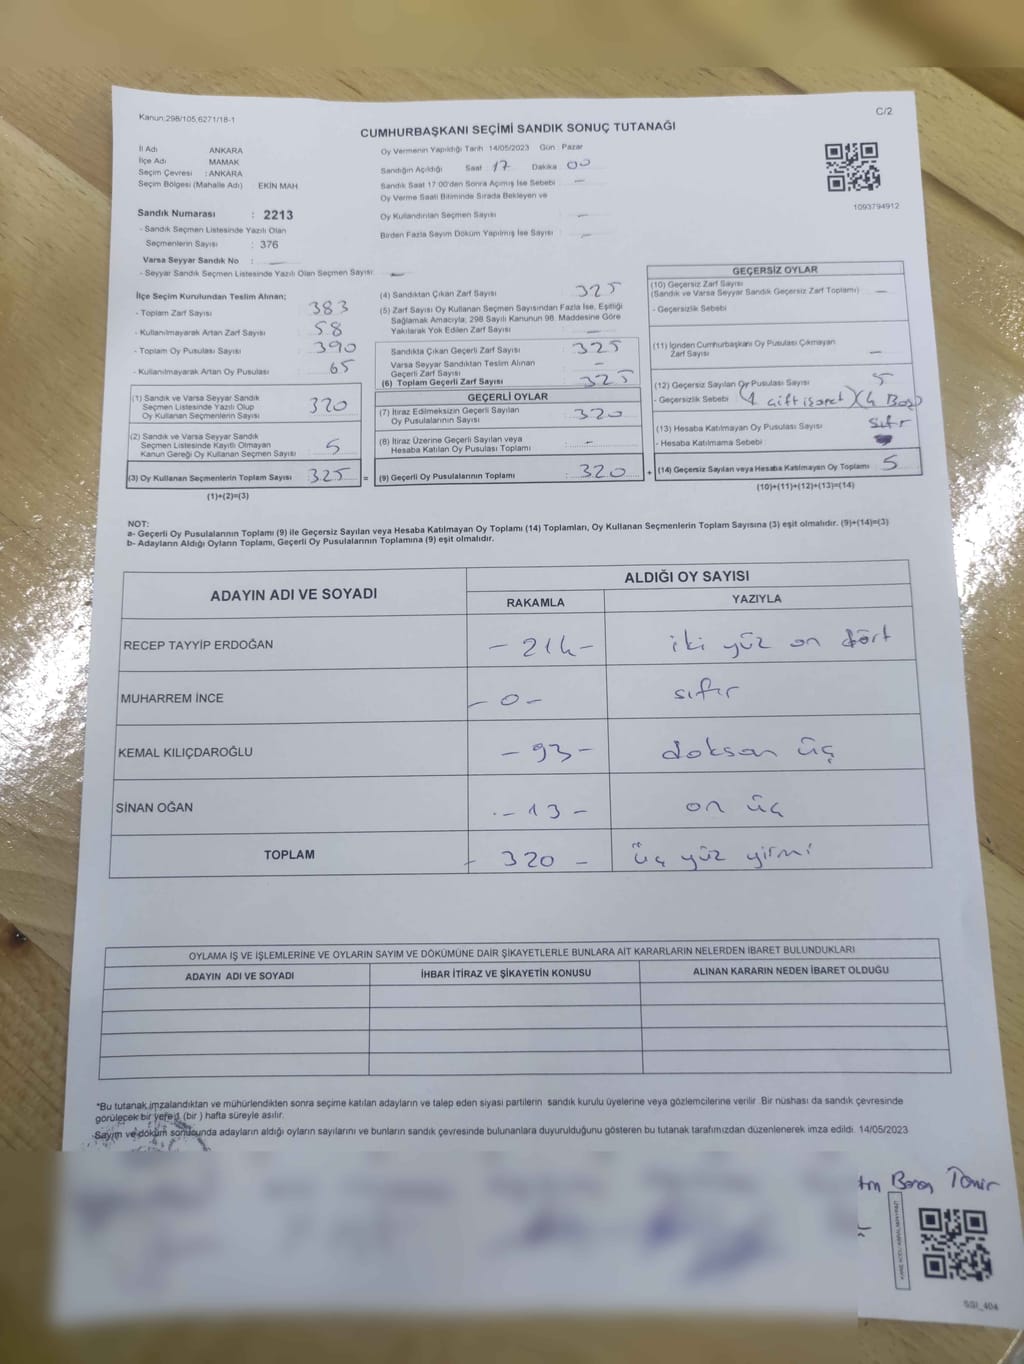 Kanun;298/105,6271/18-1
C/2
CUMHURBAŞKANI SEÇİMİ SANDIK SONUÇ TUTANAĞI
İl Adı ANKARA
İlçe Adı MAMAK
Seçim Çevresi : ANKARA
Seçim Bölgesi (Mahalle Adı) EKİN MAH.
Sandık Numarası : 2213
- Sandık Seçmen Listesinde Yazılı Olan
Seçmenlerin Sayısı : 376
Varsa Seyyar Sandık No : —
- Seyyar Sandık Seçmen Listesinde Yazılı Olan Seçmen Sayısı: —
Oy Vermenin Yapıldığı Tarih 14/05/2023 Gün : Pazar
Sandığın Açıldığı Saat 17 Dakika 00
Sandık Saat 17:00'den Sonra Açılmış İse Sebebi : —
Oy Verme Saati Bitiminde Sırada Bekleyen ve
Oy Kullandırılan Seçmen Sayısı : —
Birden Fazla Sayım Döküm Yapılmış İse Sayısı : —
1093794912
İlçe Seçim Kurulundan Teslim Alınan;
- Toplam Zarf Sayısı : 383
- Kullanılmayarak Artan Zarf Sayısı : 58
- Toplam Oy Pusulası Sayısı : 390
- Kullanılmayarak Artan Oy Pusulası : 65
(1) Sandık ve Varsa Seyyar Sandık
Seçmen Listesinde Yazılı Olup
Oy Kullanan Seçmenlerin Sayısı : 320
(2) Sandık ve Varsa Seyyar Sandık
Seçmen Listesinde Kayıtlı Olmayan
Kanun Gereği Oy Kullanan Seçmen Sayısı : 5
(3) Oy Kullanan Seçmenlerin Toplam Sayısı : 325 =
(1)+(2)=(3)
(4) Sandıktan Çıkan Zarf Sayısı : 325
(5) Zarf Sayısı Oy Kullanan Seçmen Sayısından Fazla İse, Eşitliği
Sağlamak Amacıyla; 298 Sayılı Kanunun 98. Maddesine Göre
Yakılarak Yok Edilen Zarf Sayısı : —
Sandıkta Çıkan Geçerli Zarf Sayısı : 325
Varsa Seyyar Sandıktan Teslim Alınan
Geçerli Zarf Sayısı : —
(6) Toplam Geçerli Zarf Sayısı : 325
GEÇERLİ OYLAR
(7) İtiraz Edilmeksizin Geçerli Sayılan
Oy Pusulalarının Sayısı : 320
(8) İtiraz Üzerine Geçerli Sayılan veya
Hesaba Katılan Oy Pusulası Toplamı : -
(9) Geçerli Oy Pusulalarının Toplamı : 320 +
GEÇERSİZ OYLAR
(10) Geçersiz Zarf Sayısı
(Sandık ve Varsa Seyyar Sandık Geçersiz Zarf Toplamı) : —
- Geçersizlik Sebebi :
(11) İçinden Cumhurbaşkanı Oy Pusulası Çıkmayan
Zarf Sayısı : —
(12) Geçersiz Sayılan Oy Pusulası Sayısı : 5
- Geçersizlik Sebebi : (1 Çift işaret) (4 Boş)
(13) Hesaba Katılmayan Oy Pusulası Sayısı : sıfır
- Hesaba Katılmama Sebebi :
(14) Geçersiz Sayılan veya Hesaba Katılmayan Oy Toplamı : 5
(10)+(11)+(12)+(13)=(14)
NOT:
a- Geçerli Oy Pusulalarının Toplamı (9) ile Geçersiz Sayılan veya Hesaba Katılmayan Oy Toplamı (14) Toplamları, Oy Kullanan Seçmenlerin Toplam Sayısına (3) eşit olmalıdır. (9)+(14)=(3)
b- Adayların Aldığı Oyların Toplamı, Geçerli Oy Pusulalarının Toplamına (9) eşit olmalıdır.
ADAYIN ADI VE SOYADI
ALDIĞI OY SAYISI
RAKAMLA YAZIYLA
RECEP TAYYİP ERDOĞAN - 214 - iki yüz on dört
MUHARREM İNCE - 0 - sıfır
KEMAL KILIÇDAROĞLU - 93 - doksan üç
SİNAN OĞAN - 13 - on üç
TOPLAM - 320 - üç yüz yirmi
OYLAMA İŞ VE İŞLEMLERİNE VE OYLARIN SAYIM VE DÖKÜMÜNE DAİR ŞİKAYETLERLE BUNLARA AİT KARARLARIN NELERDEN İBARET BULUNDUKLARI
ADAYIN ADI VE SOYADI İHBAR İTİRAZ VE ŞİKAYETİN KONUSU ALINAN KARARIN NEDEN İBARET OLDUĞU
*Bu tutanak imzalandıktan ve mühürlendikten sonra seçime katılan adayların ve talep eden siyasi partilerin sandık kurulu üyelerine veya gözlemcilerine verilir. Bir nüshası da sandık çevresinde
görülecek bir yere (bir ) hafta süreyle asılır.
Sayım ve döküm sonucunda adayların aldığı oyların sayılarını ve bunların sandık çevresinde bulunanlara duyurulduğunu gösteren bu tutanak tarafımızdan düzenlenerek imza edildi. 14/05/2023
SGI_404